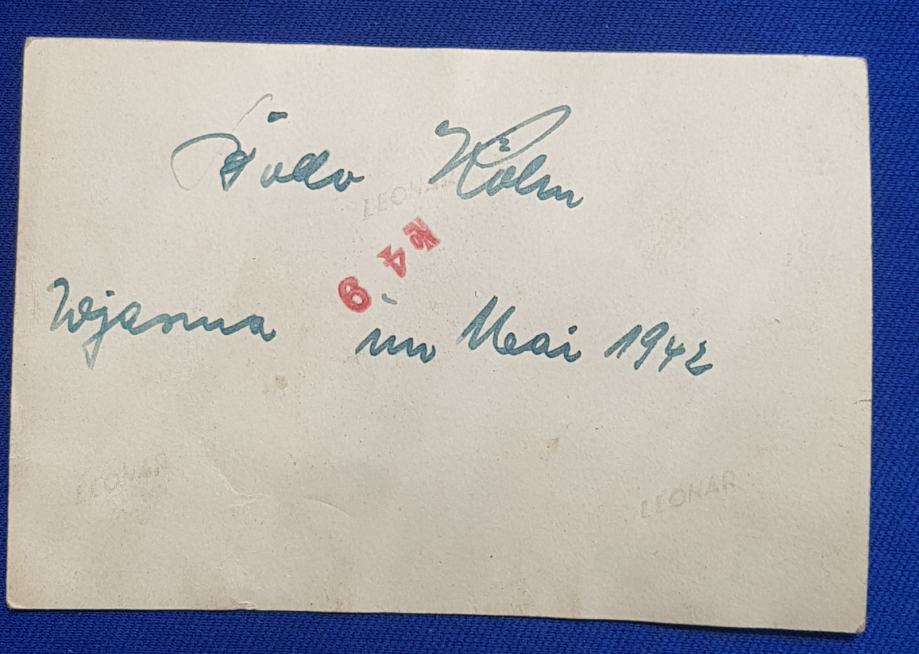 Köln
LEONAR
№ 49
Wjasma im Mai 1942
LEONAR
LEONAR